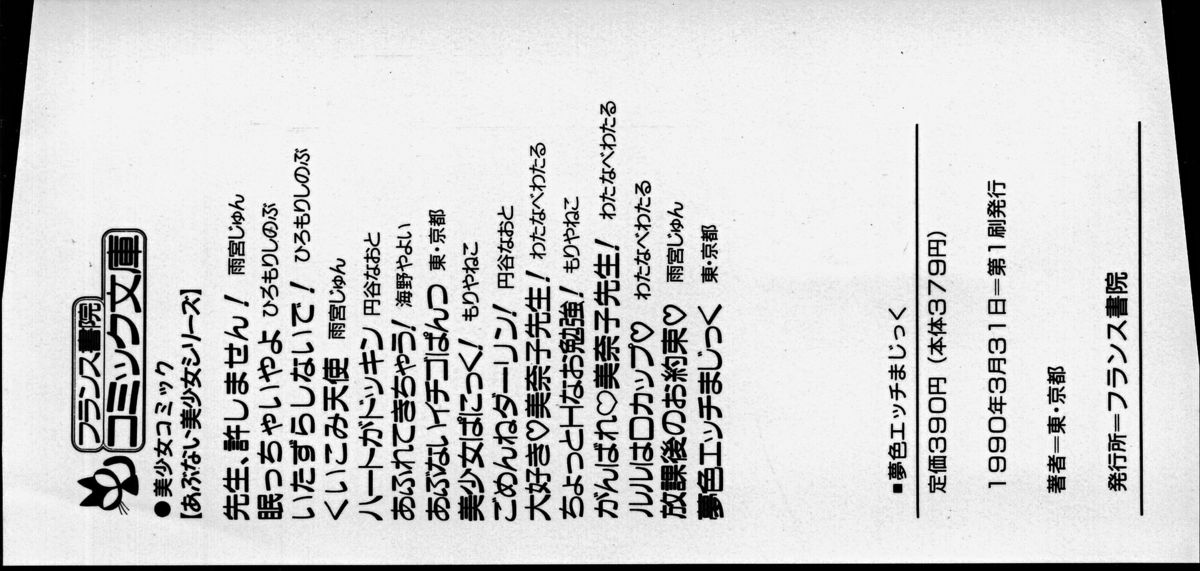 フランス書院
コミック文庫
●美少女コミック
【あぶない美少女シリーズ】
先生、許しません! 雨宮じゅん
眠っちゃいやよ ひろもりしのぶ
いたずらしないで! ひろもりしのぶ
くいこみ天使 雨宮じゅん
ハートがドッキン 円谷なおと
あふれてきちゃう! 海野やよい
あぶないイチゴぱんつ 東・京都
美少女ぱにっく! もりやねこ
ごめんねダーリン! 円谷なおと
大好き♡美奈子先生! わたなべわたる
ちょっとHなお勉強! もりやねこ
がんばれ♡美奈子先生! わたなべわたる
ルルはロカップ♡ わたなべわたる
放課後のお約束♡ 雨宮じゅん
夢色エッチまじっく 東・京都
■夢色エッチまじっく
定価390円(本体379円)
1990年3月31日=第1刷発行
著者=東・京都
発行所=フランス書院